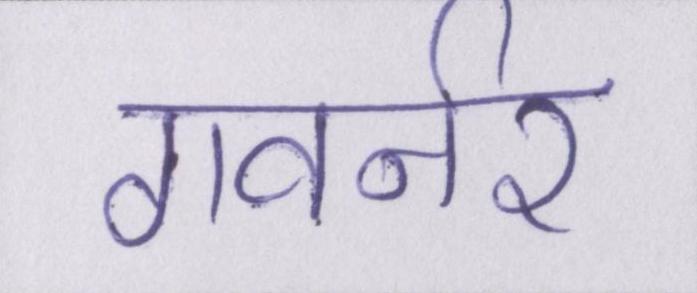 गवर्नर